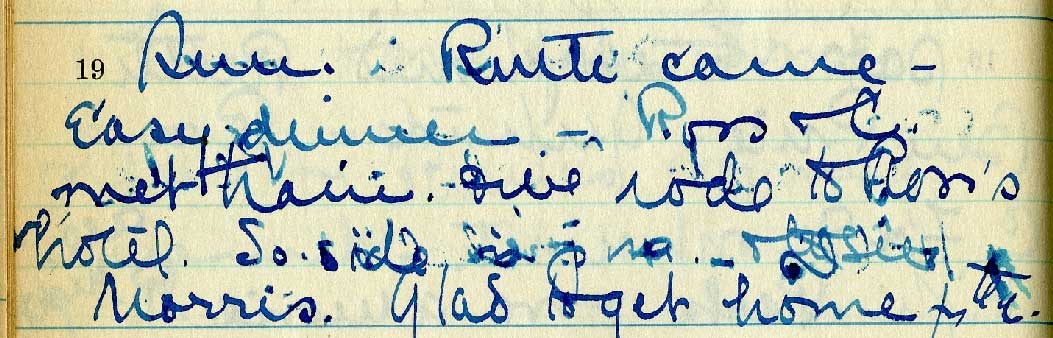 19 Sun. Route came -
Easy dinner - Ross & C.
met train. rode to Ross's
hotel. So. side is
Morris. Glad to get home